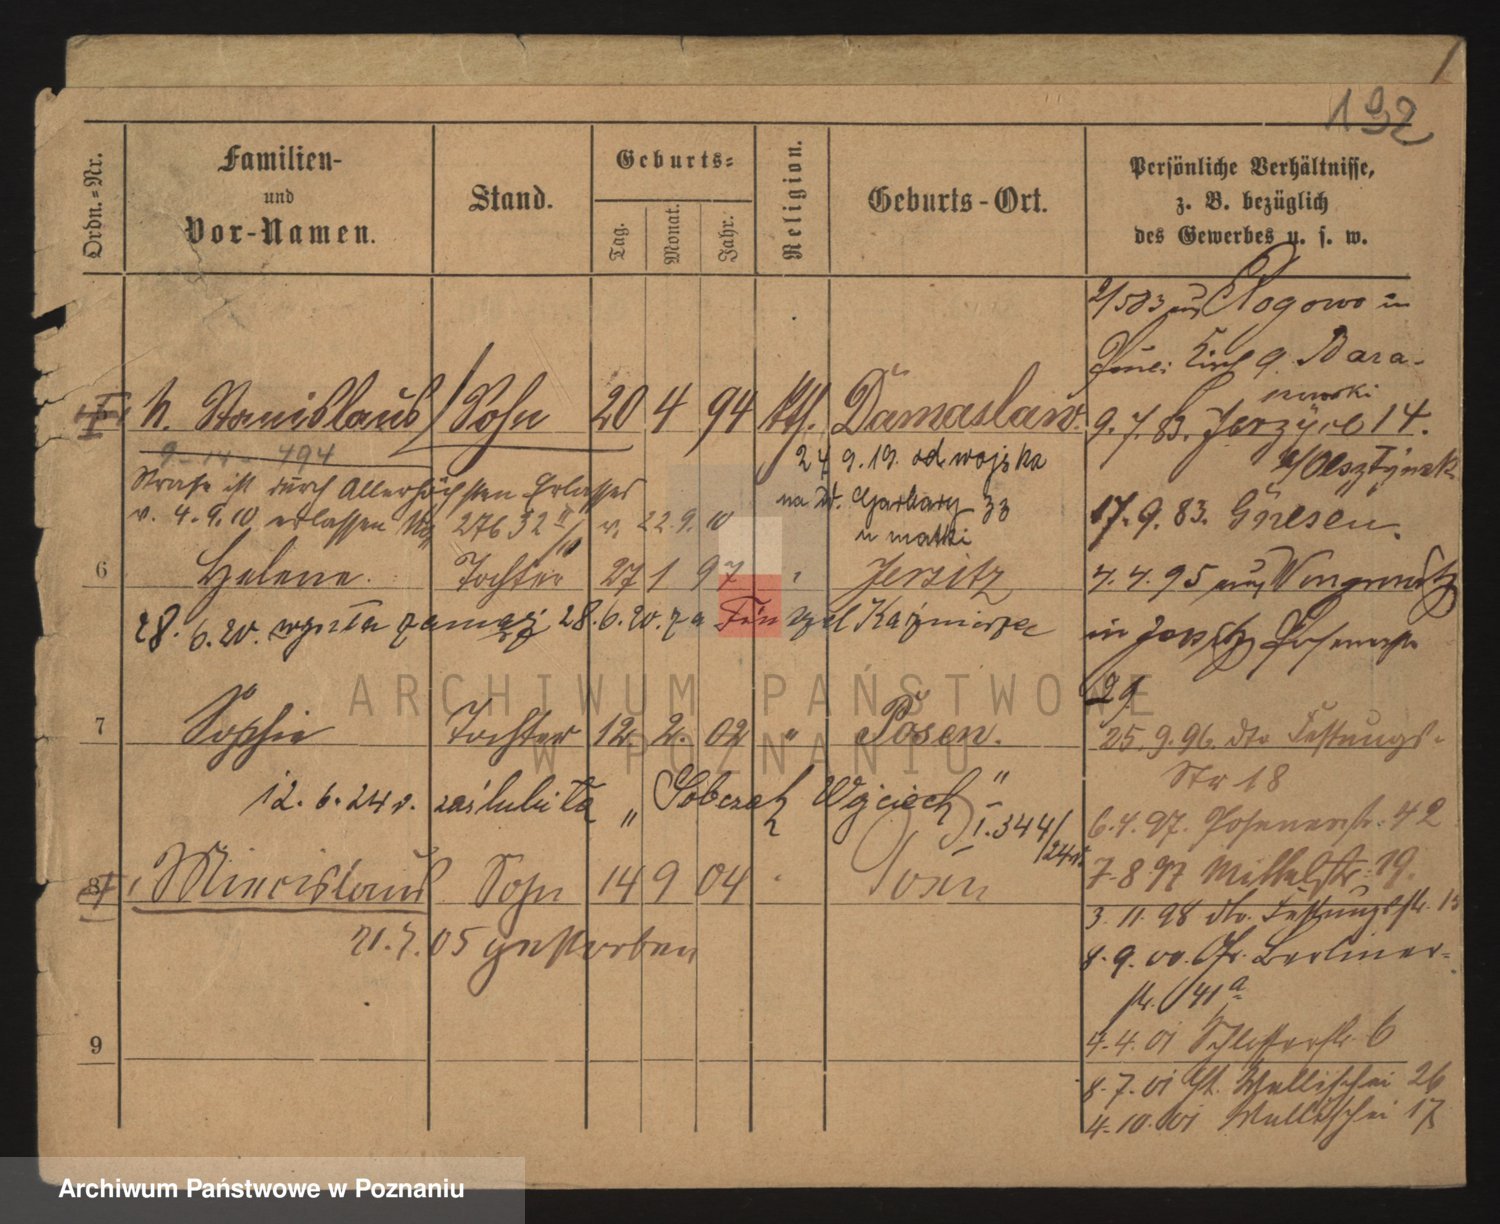 192
Ordn.-Nr.
Familien-
und
Vor-Namen.
Stand.
Geburts-
Tag.
Monat.
Jahr.
Religion.
Geburts-Ort.
Persönliche Verhältnisse,
z. B. bezüglich
des Gewerbes u. s. w.
2/583 aus Rogowo in
9.7.83. Jerzyce 14.
17.9.83. Gnesen.
4.4.95 aus Wongrowitz
in Jersitz
29
25.9.96. dto Festungs-
Str 18
6.4.97. Posenerstr. 42
7.8.97 Mittelstr. 19.
3.11.98 dto. Festungsstr. 13
8.9.00. Gr. Berliner-
str. 41a
4.4.01 6
8.7.01 Wallischei 26
4.10.01 Wallischei 17
5 Stanislaus Sohn 20 4 94 kth. Damaslaw.
9-14- 494
24 9.19. od wojska
Strafe ist durch Allerhöchsten Erlasses
na W. Garbary 33
v. 4.9.10 erlassen 27632 v. 22.9.10
u matki
6 Helene. Tochter 27 1 97 " Jersitz
28.6.20. wyszła zamąż 28.6.20. za Kaźmierza
7 Sophie Tochter 12. 2. 02 " Posen.
12.6.24 r. zaślubiła „Sobczak Wojciech"
I.344/24
8 Miecislaus Sohn 14 9 04 Posen
21.7.05 gestorben
9
ARCHIWUM PAŃSTWOWE
W POZNANIU
Archiwum Państwowe w Poznaniu